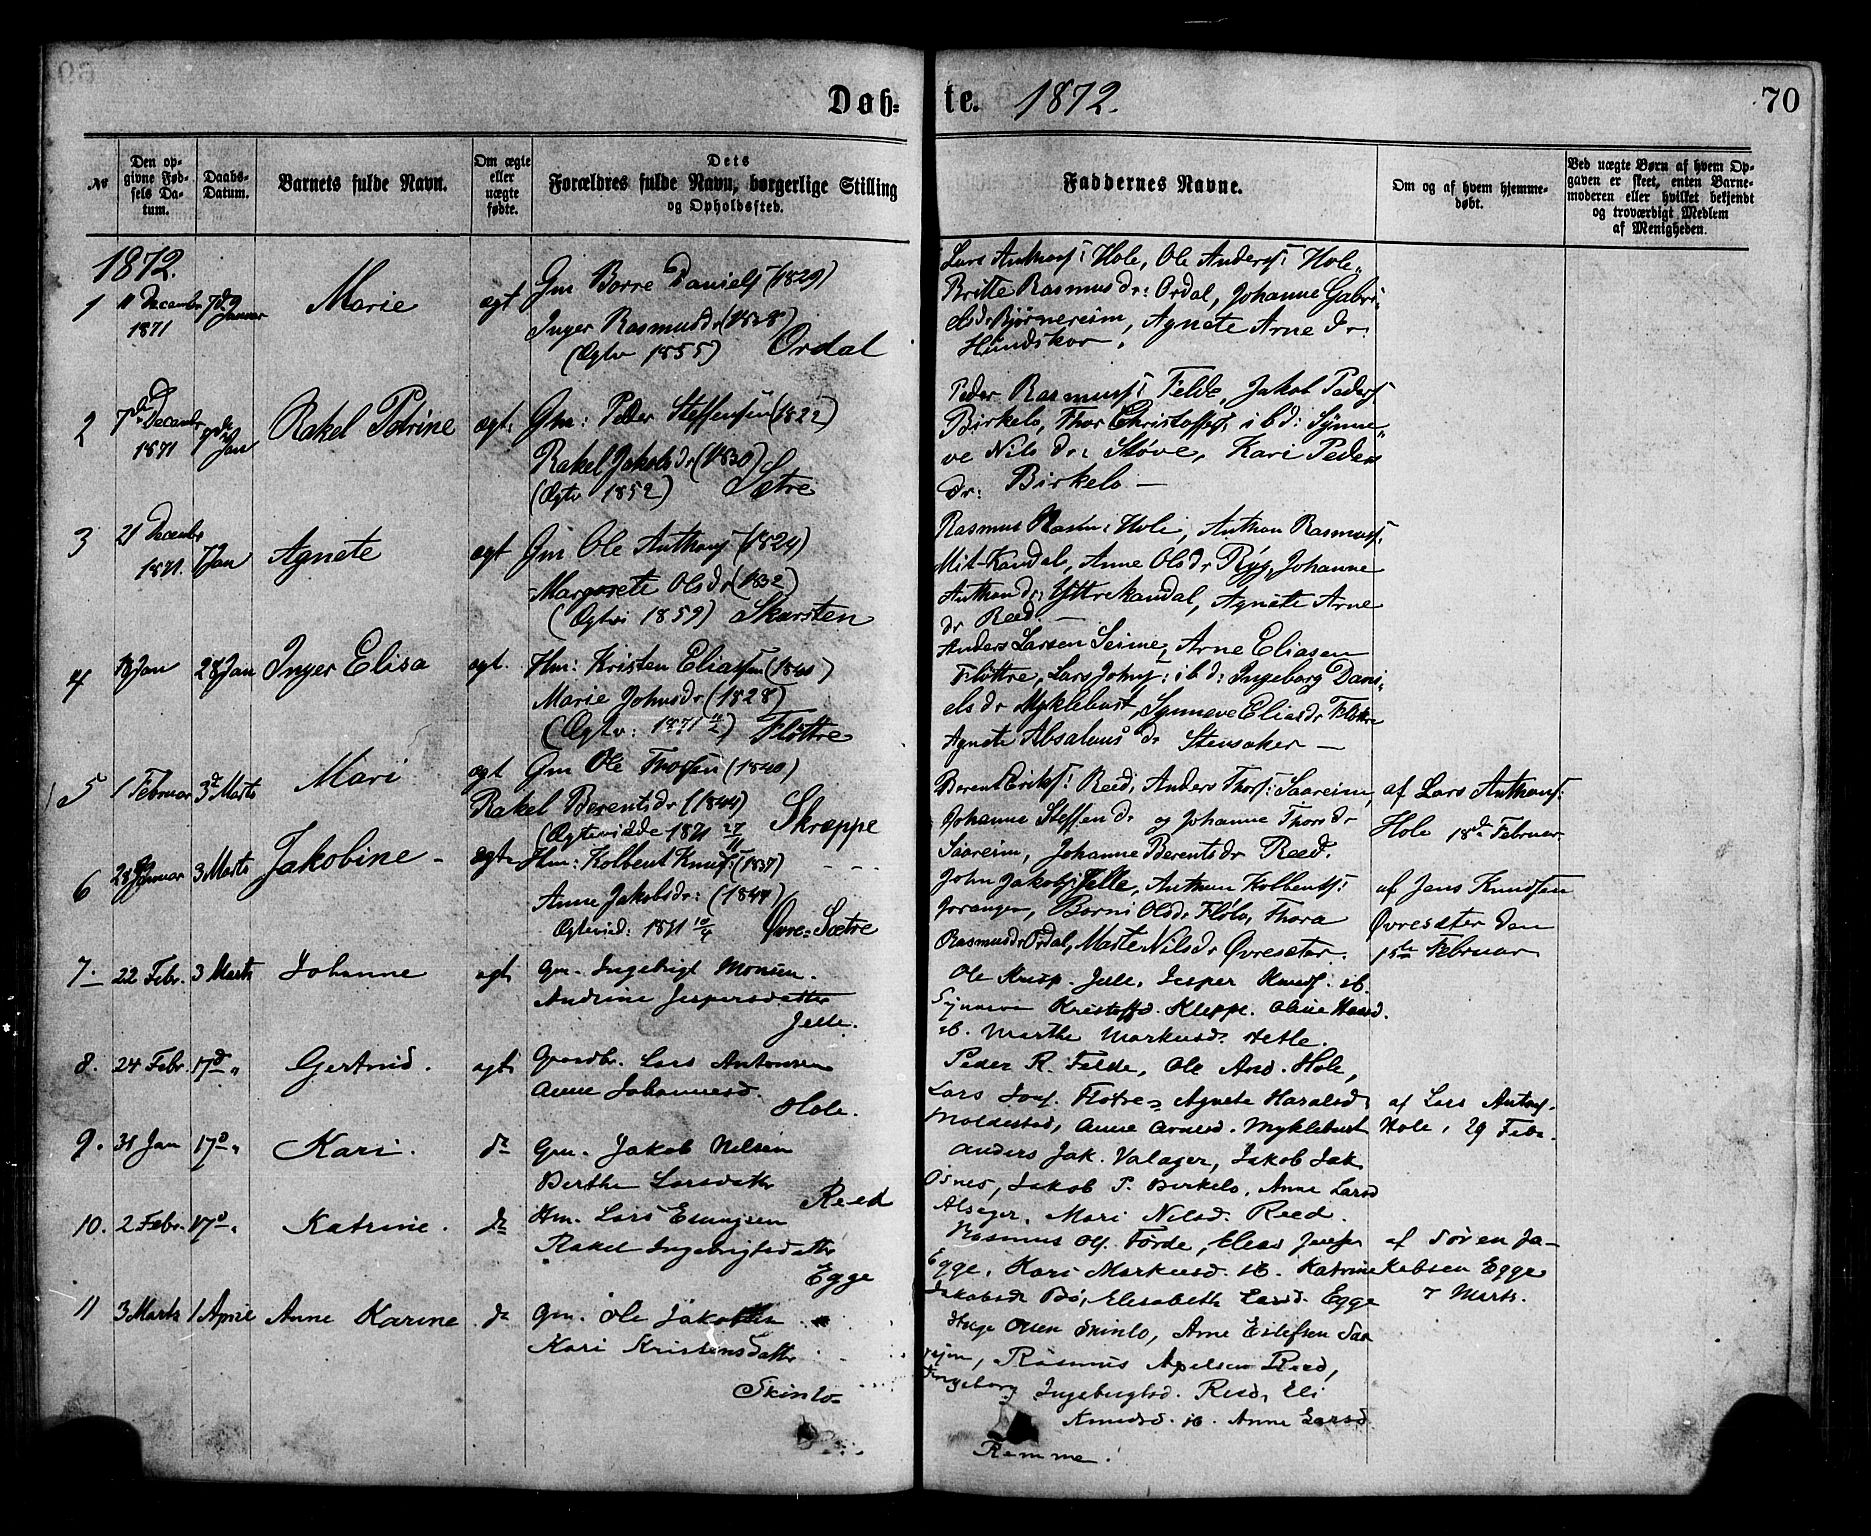 Døb-te. 1872.
70
№
Den op-
givne Fød-
sels Da-
tum.
Daabs-
Datum.
Barnets fulde Navn.
Om ægte
eller
uægte
fødte.
Dets
Forældres fulde Navn, borgerlige Stilling
og Opholdssted.
Faddernes Navne.
Om og af hvem hjemme-
døbt.
Ved uægte Børn af hvem Op-
gaven er skeet, enten Barne-
moderen eller hvilket bekjendt
og troværdigt Medlem
af Menigheden.
1872.
1 11 December 1871 7de Januar Marie ægt Gm Børre Daniels (1829)
Inger Rasmusdr (1828)
(Ægtv 1855) Ordal
Lars Anthons: Hole, Ole Anders: Hole,
Britte Rasmusdr: Ordal, Johanne Gabri-
elsdr Bjørnereim, Agnete Arne dr
Hundskor.
2 7de December 1871 7de Jan Rakel Petrine ægt: Gm: Peder Steffensen (1822)
Rakel Jakobsdr (1830)
(Ægtv 1852) Sætre
Peder Rasmuss: Felde, Jakob Peders:
Birkelo, Thor Christoffers: ibd: Synne-
ve Nils dr: Støve, Kari Peders
dr: Birkelo —
3 21 December 1871. 7 Jan Agnete ægt Gm Ole Anthons (1824)
Margrete Olsdr (1832)
(Ægtv 1859) Skarsten
Rasmus Hole, Anthon Rasmuss:
Mit-Kandal, Anne Olsdr Ryg, Johanne
Anthondr: Yttrekandal, Agnete Arne
dr Reed. —
4 18 Jan 28 Jan Inger Elisa ægt. Hm: Kristen Eliassen
Marie Johnsdr (1828)
(Ægtv: 1871) Fløttre
Anders Larsen Seime, Arne Eliasen
Fløttre, Lars Johns: ibd: Ingeborg Dani-
elsdr Myklebust, Synneve Eliasdr Fløttre
Agnete Absalons dr Stensaker —
5 1 Februar 3de Marts Mari ægt Gm Ole Thorsen (1840)
Rakel Berentsdr (1844)
(Ægteviede 1871 27/11 Skreppe
Berent Eriks: Reed, Anders Thors: Saareim,
Johanne Steffendr og Johanne Thorsdr
Saareim, Johanne Berentsdr Reed.
af Lars Anthons:
Hole 18de Februar
6 28 Januar 3 Marts Jakobine - ægte Hm: Kolbent Knuds: (1837)
Anne Jakobsdr: (1847)
Ægteviede: 1871 Øvre-Sætre
John Jakobs: Jelle, Anthon Kolbents:
Joranger, Borni Olsdr Fløtre, Thora
Rasmusdr Ordal, Marte Nilsdr Øvresæter.
af Jens Knudsen
Øvresæter den
15de Februar
7. 22 Febr. 3 Marts Johanne ægt: Gm. Ingebrigt Monsen.
Andrine Jespersdatter
Jelle.
Ole Jelle, Jesper Knuds. ib.
Synneve Kristoffd. Kleppe. Oline Hansd.
ib. Marthe Markusd. Hetle.
8. 24 Febr. 17de " Gertrud. ægt: Gaardbr. Lars Antonsen
Anne Johannesd.
Hole.
Peder R. Felde, Ole And. Hole,
Lars Fløtre, Agnete Haraldsd
Moldestad, Anne Arnesd. Myklebust
af Lars Antons.
Hole, 29 Febr.
9. 31 Jan 17de " Kari. do Gm. Jakob Nilsen
Berthe Larsdatter
Reed
Anders Jak. Valager, Jakob Jak
Osnes, Jakob P. Birkelo, Anne Larsd
Alsager, Mari Nilsd. Reed.
10. 2 Febr. 17de " Katrine. do Hm. Lars
Rakel Ingebrigtsdatter
Egge
Rasmus Ols. Førde, Elias
Egge, Kari Markusd. ib. Katrine
Jakobsd. Bø, Elisabeth Larsd. Egge
af Søren Ja-
kobsen Egge
7 Marts.
11 3 Marts 1 April Anne Karine do Gm. Ole Jakobsen
Kari Kristensdatter
Skinlo-
Olsen Skinlo, Arne Estefsen Saa-
rejm, Rasmus Apelsen Reed,
Ingeborg Ingebrigtsd. Reed, Eli
Knudsd. ib. Anne Larsd.
Remme.